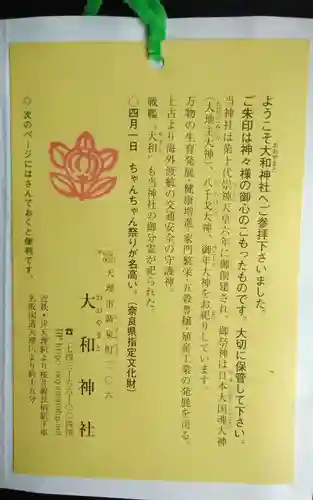 ようこそ大和神社へご参拝下さいました。
ご朱印は神々様の御心のこもったものです。大切に保管して下さい。
当神社は第十代崇神天皇六年に御創建され、御祭神は日本大国魂大神
(大地主大神)、八千戈大神、御年大神をお祀りしています。
万物の生育発展・健康増進・家門繁栄・五穀豊穣・殖産工業の発展を司る。
上古より海外渡航の交通安全の守護神。
戦艦「大和」も当神社の御分霊が祀られた。
〇四月一日 ちゃんちゃん祭りが名高い。(奈良県指定文化財)
天理市新泉町三〇六
大和神社
おおやまと
近鉄・JR天理駅より桜井線長柄駅下車
名阪国道天理ICより約十五分
〇次のページにはさんでおくと便利です。